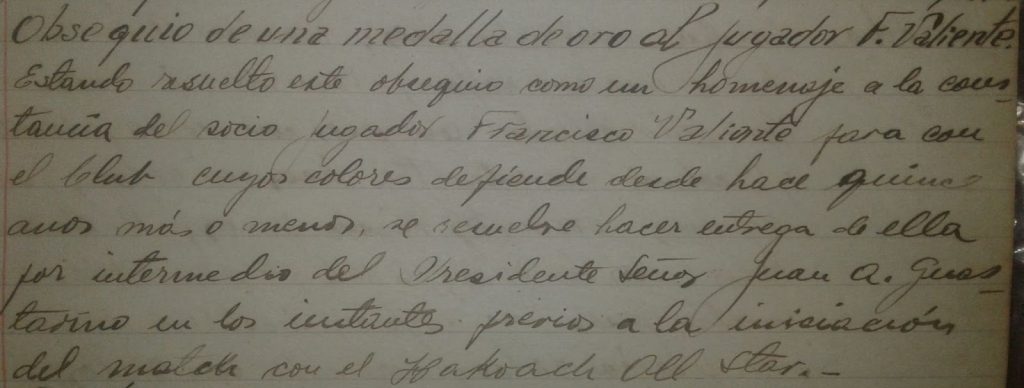 Obsequio de una medalla de oro al jugador F. Valiente.
Estando resuelto este obsequio como un homenaje a la cons-
tancia del socio jugador Francisco Valiente para con
el Club cuyos colores defiende desde hace quince
anos más o menos, se resuelve hacer entrega de ella
por intermedio del Presidente Señor Juan A. Guas-
tavino en los instantes previos a la iniciación
del match con el Hakoach All Star.-